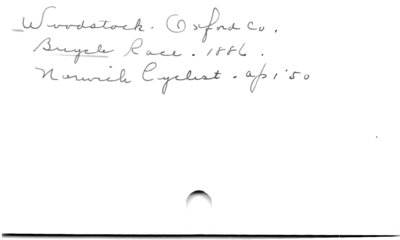 Woodstock. Oxford Co.
Bicycle Race. 1886.
Norwich Cyclist. ap 1 '50